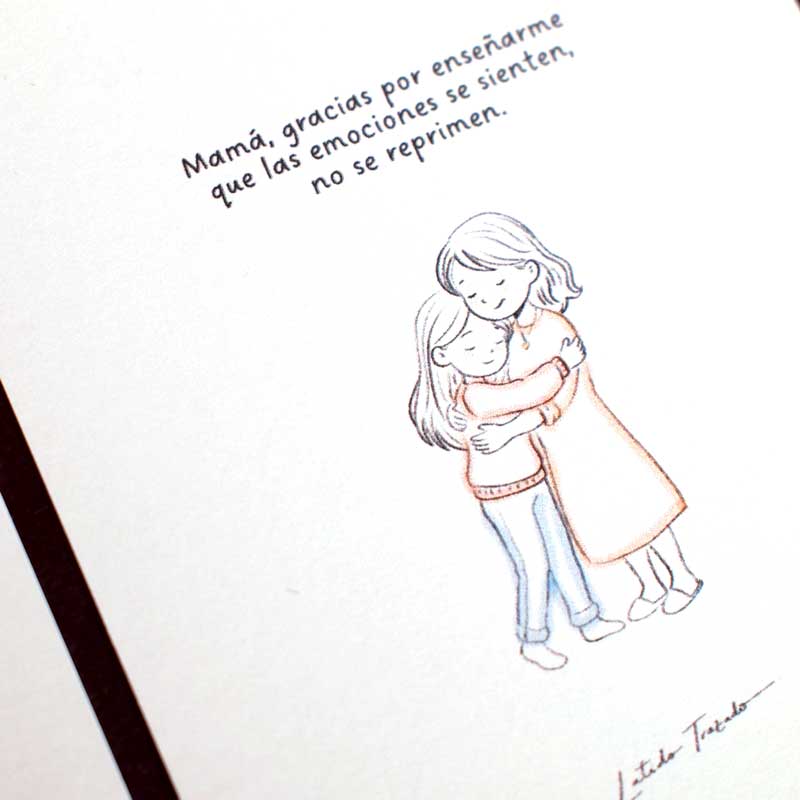 Mamá, gracias por enseñarme
que las emociones se sienten,
no se reprimen.
Latido Trazado